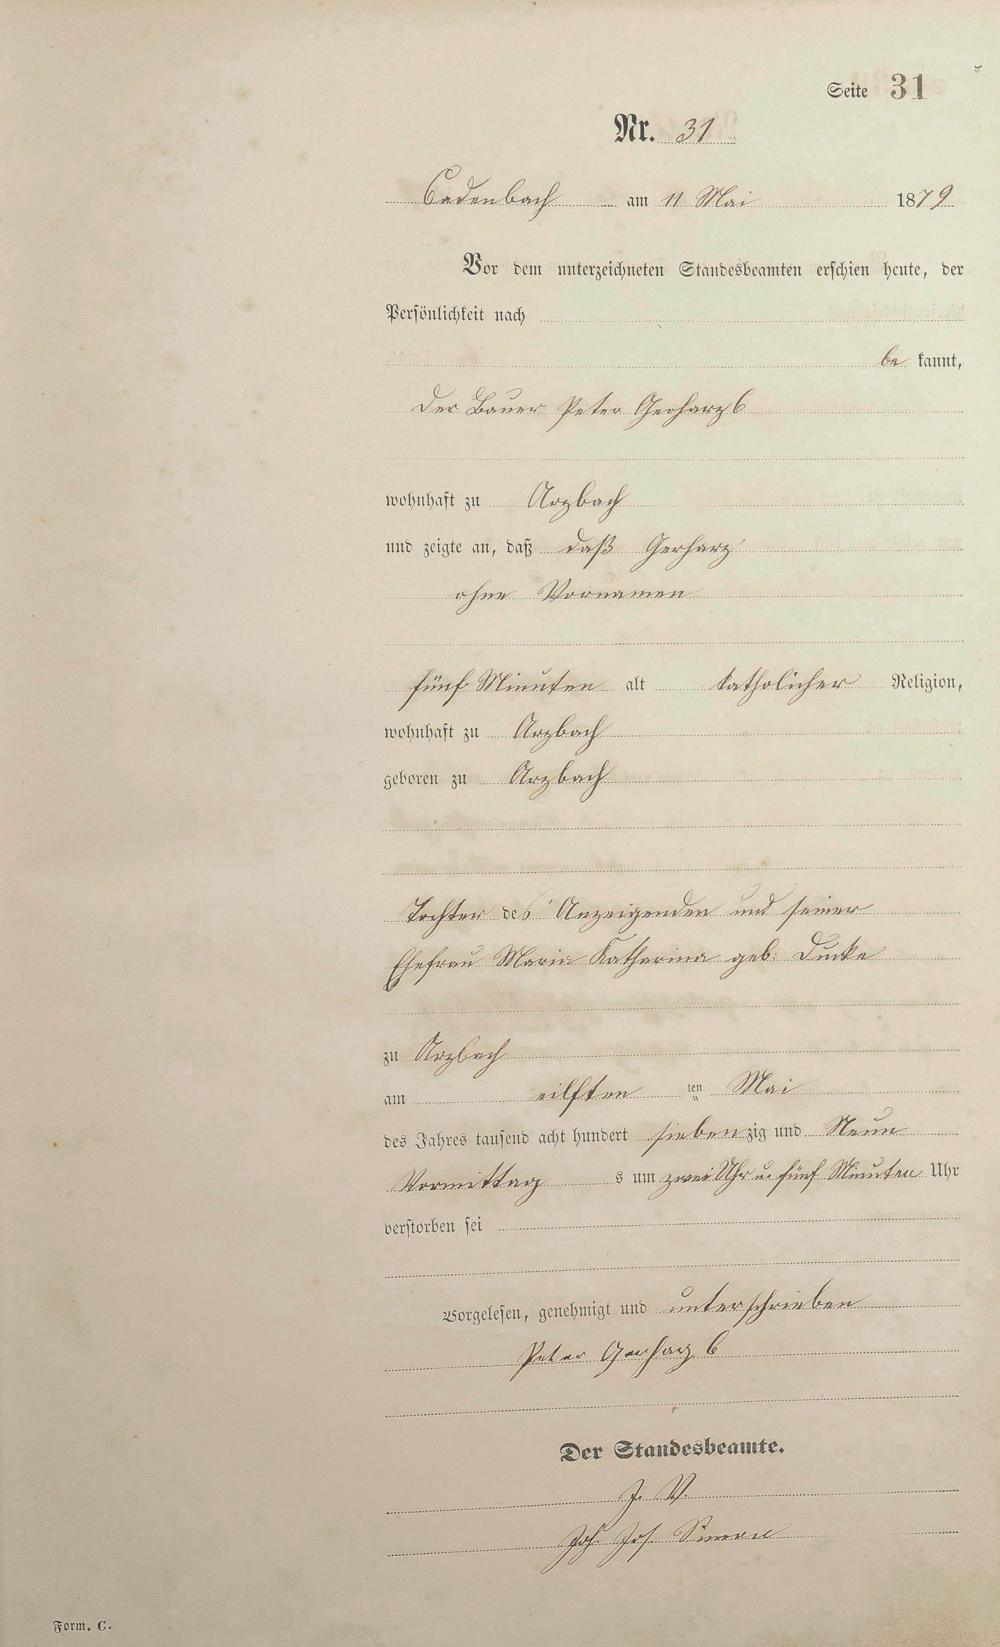 Seite 31
Nr. 31
Cadenbach am 11 Mai 1879
Vor dem unterzeichneten Standesbeamten erschien heute, der
Persönlichkeit nach
be kannt,
der Bauer Peter Gerharz 6
wohnhaft zu Arzbach
und zeigte an, daß daß Gerharz
ohne Vornamen
fünf Minuten alt katholicher Religion,
wohnhaft zu Arzbach
geboren zu Arzbach
Tochter des Anzeigenden und seiner
Ehefrau Maria Katharina geb: Ducke
zu Arzbach
am eilften ten Mai
des Jahres tausend acht hundert siebenzig und Neun
Vormittag s um zwei Uhr u. fünf Minuten Uhr
verstorben sei
Vorgelesen, genehmigt und unterschrieben
Peter Gerharz 6
Der Standesbeamte.
J. V.
Joh. Jos. Simon
Form. C.